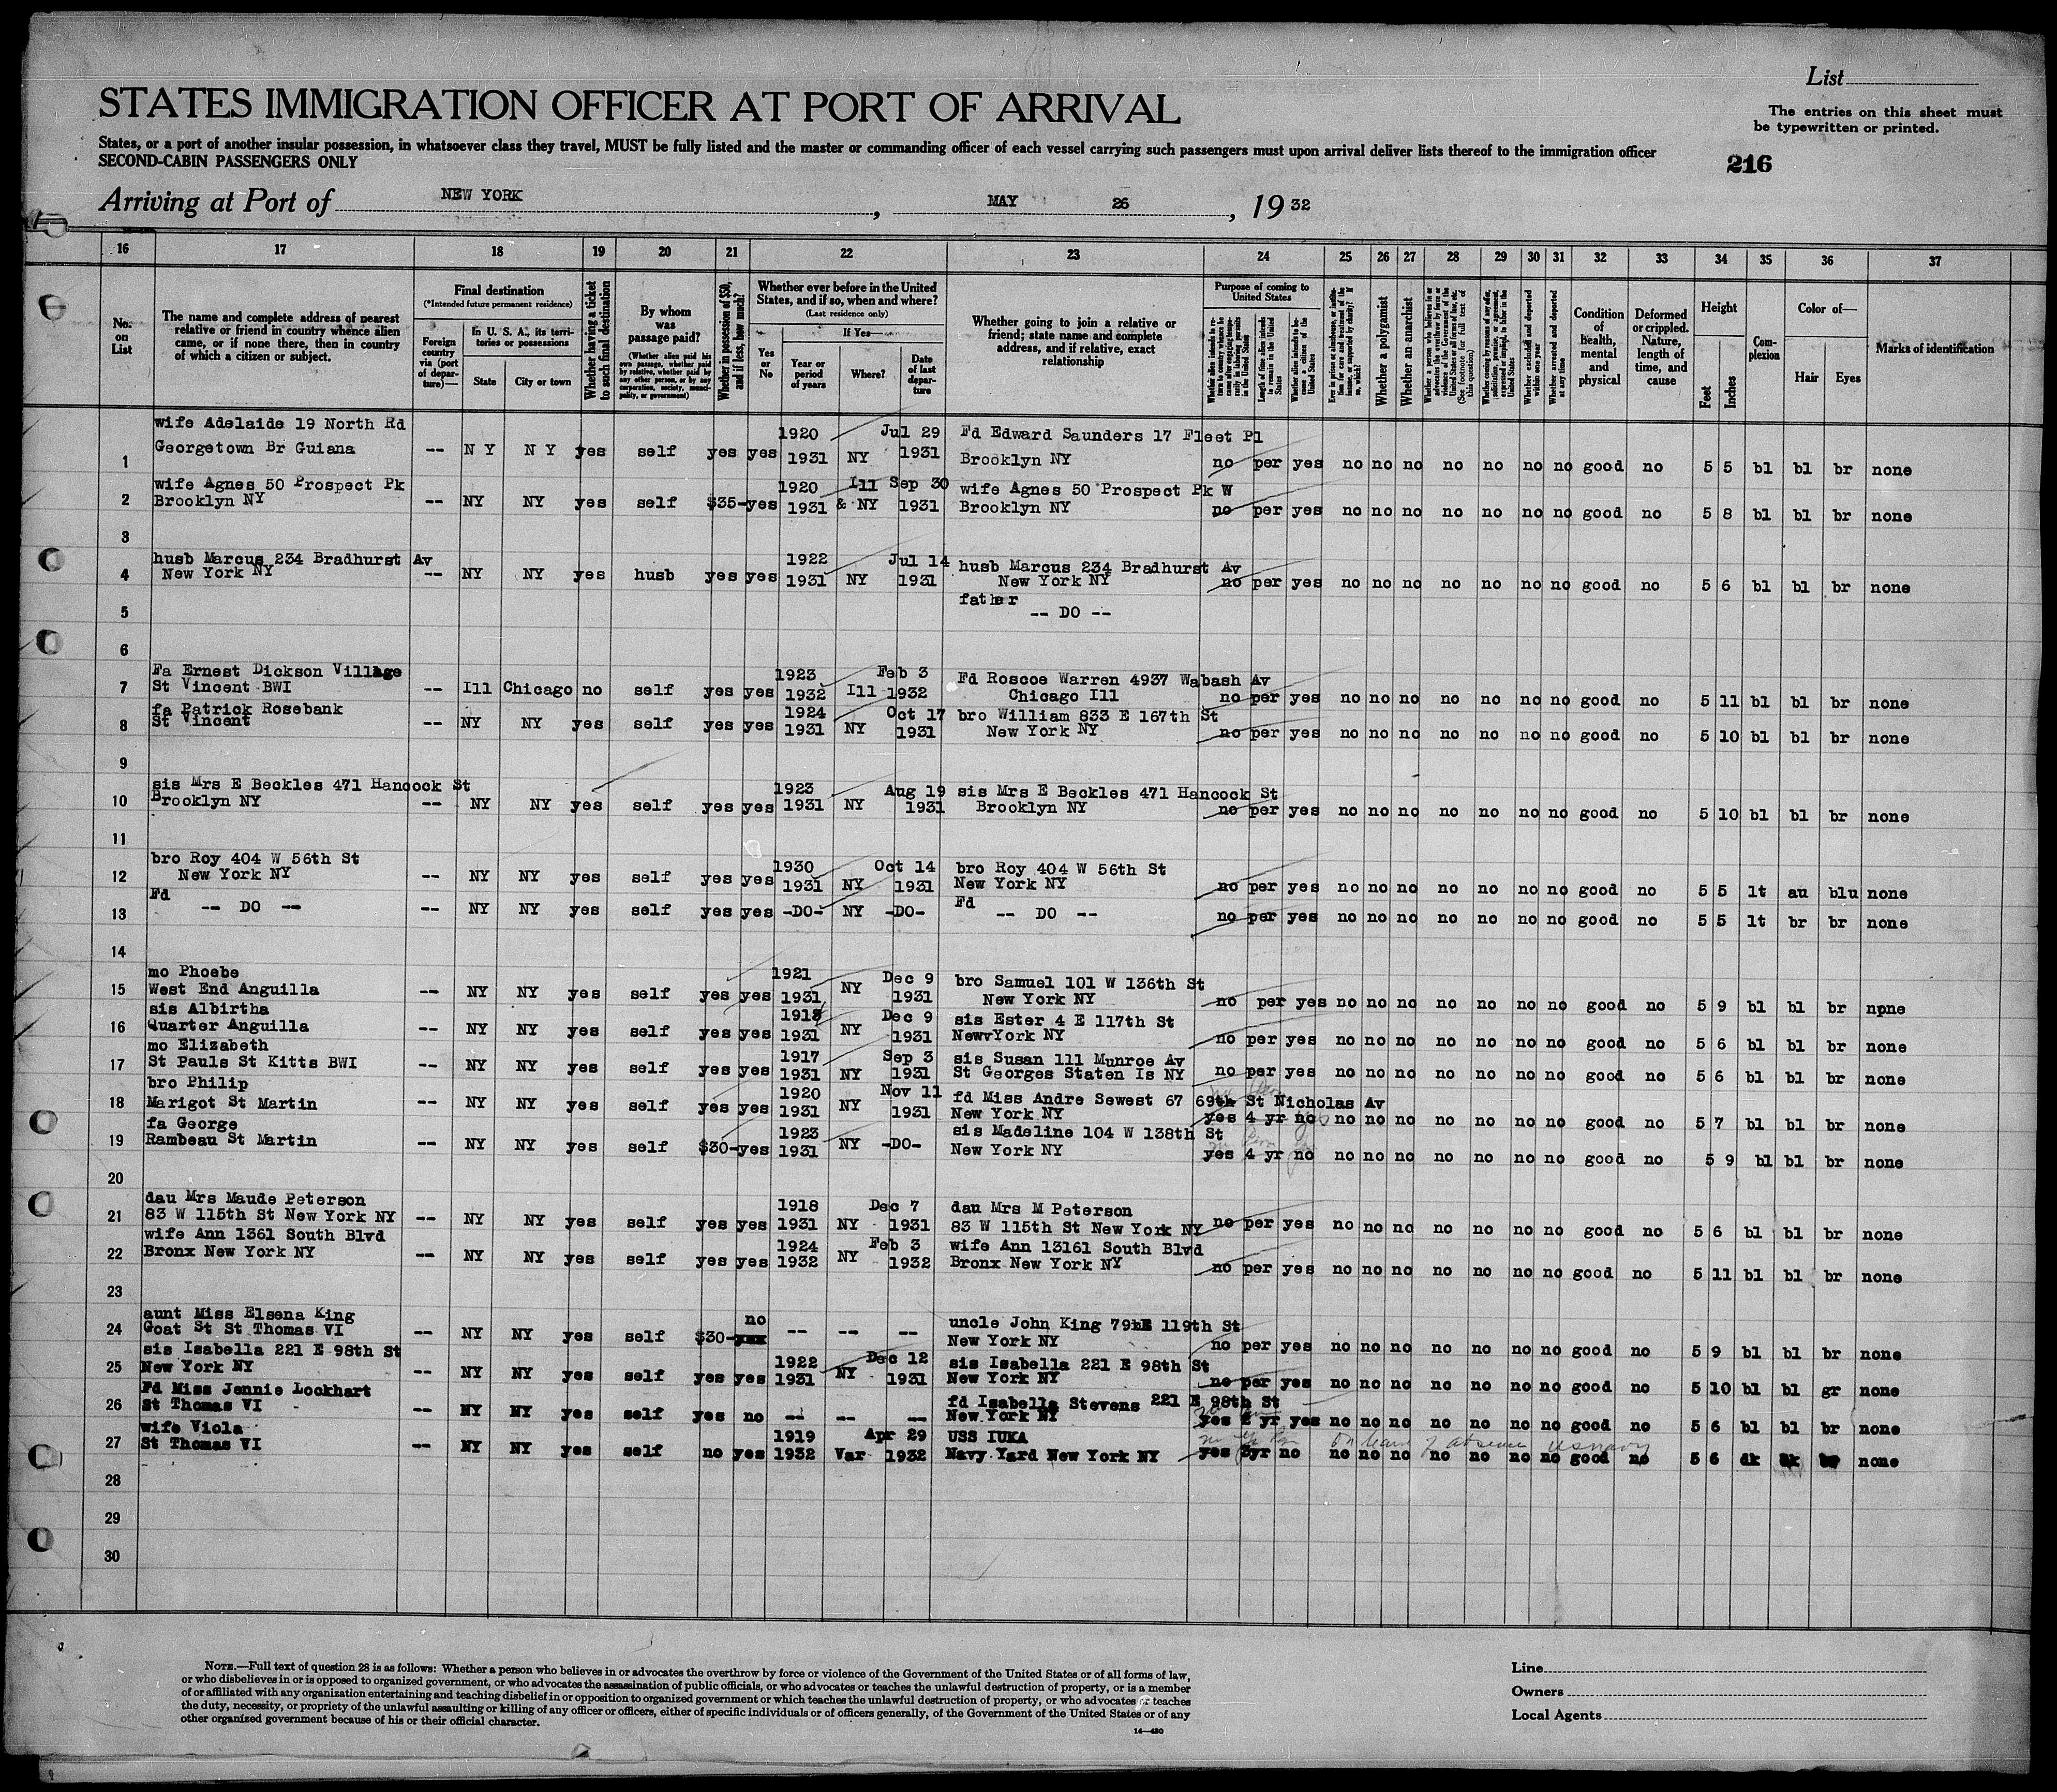 List
STATES IMMIGRATION OFFICER AT PORT OF ARRIVAL
The entries on this sheet must
be typewritten or printed.
States, or a port of another insular possession, in whatsoever class they travel, MUST be fully listed and the master or commanding officer of each vessel carrying such passengers must upon arrival deliver lists thereof to the immigration officer
SECOND-CABIN PASSENGERS ONLY
216
Arriving at Port of NEW YORK, MAY 26, 19 32
16 17 18 19 20 21 22 23 24 25 26 27 28 29 30 31 32 33 34 35 36 37
No. on List
The name and complete address of nearest relative or friend in country whence alien came, or if none there, then in country of which a citizen or subject.
Final destination
(*Intended future permanent residence)
Foreign country via (port of departure)—
In U. S. A., its territories or possessions
State
City or town
Whether having a ticket to such final destination
By whom was passage paid?
(Whether alien paid his own passage, whether paid by relative, whether paid by any other person, or by any corporation, society, municipality, or government)
Whether in possession of $50, and if less, how much?
Whether ever before in the United States, and if so, when and where?
(Last residence only)
Yes or No
If Yes—
Year or period of years
Where?
Date of last departure
Whether going to join a relative or friend; state name and complete address, and if relative, exact relationship
Purpose of coming to United States
Length of time alien intends to remain in the United States
Whether alien intends to become a citizen of the United States
Whether a polygamist
Whether an anarchist
(See footnote for full text of this question)
Whether excluded and deported within one year
Whether arrested and deported at any time
Condition of health, mental and physical
Deformed or crippled. Nature, length of time, and cause
Height
Feet
Inches
Complexion
Color of—
Hair
Eyes
Marks of identification
wife Adelaide 19 North Rd 1920 Jul 29 Fd Edward Saunders 17 Fleet Pl
1 Georgetown Br Guiana -- N Y N Y yes self yes yes 1931 NY 1931 Brooklyn NY no per yes no no no no no no no good no 5 5 bl bl br none
wife Agnes 50 Prospect Pk 1920 Ill Sep 30 wife Agnes 50 Prospect Pk W
2 Brooklyn NY -- NY NY yes self $35- yes 1931 & NY 1931 Brooklyn NY no per yes no no no no no no no good no 5 8 bl bl br none
3
husb Marcus 234 Bradhurst Av 1922 Jul 14 husb Marcus 234 Bradhurst Av
4 New York NY -- NY NY yes husb yes yes 1931 NY 1931 New York NY no per yes no no no no no no no good no 5 6 bl bl br none
father
5 -- DO --
6
Fa Ernest Dickson Village 1923 Feb 3 Fd Roscoe Warren 4937 Wabash Av
7 St Vincent BWI -- Ill Chicago no self yes yes 1932 Ill 1932 Chicago Ill no per yes no no no no no no no good no 5 11 bl bl br none
fa Patrick Rosebank 1924 Oct 17 bro William 833 E 167th St
8 St Vincent -- NY NY yes self yes yes 1931 NY 1931 New York NY no per yes no no no no no no no good no 5 10 bl bl br none
9
sis Mrs E Beckles 471 Hancock St 1923 Aug 19 sis Mrs E Beckles 471 Hancock St
10 Brooklyn NY -- NY NY yes self yes yes 1931 NY 1931 Brooklyn NY no per yes no no no no no no no good no 5 10 bl bl br none
11
bro Roy 404 W 56th St 1930 Oct 14 bro Roy 404 W 56th St
12 New York NY -- NY NY yes self yes yes 1931 NY 1931 New York NY no per yes no no no no no no no good no 5 5 lt au blu none
Fd Fd
13 -- DO -- -- NY NY yes self yes yes -DO- NY -DO- -- DO -- no per yes no no no no no no no good no 5 5 lt br br none
14
mo Phoebe 1921 Dec 9 bro Samuel 101 W 136th St
15 West End Anguilla -- NY NY yes self yes yes 1931 NY 1931 New York NY no per yes no no no no no no no good no 5 9 bl bl br npne
sis Albirtha Dec 9 sis Ester 4 E 117th St
16 Quarter Anguilla -- NY NY yes self yes yes 1931 NY 1931 NewvYork NY no per yes no no no no no no no good no 5 6 bl bl br none
mo Elizabeth 1917 Sep 3 sis Susan 111 Munroe Av
17 St Pauls St Kitts BWI -- NY NY yes self yes yes 1931 NY 1931 St Georges Staten Is NY no per yes no no no no no no no good no 5 6 bl bl br none
bro Philip 1920 Nov 11 fd Miss Andre Sewest 67 69th St Nicholas Av
18 Marigot St Martin -- NY NY yes self yes yes 1931 NY 1931 New York NY yes 4 yr no no no no no no no no good no 5 7 bl bl br none
fa George 1923 sis Madeline 104 W 138th St
19 Rambeau St Martin -- NY NY yes self $30- yes 1931 NY -DO- New York NY yes 4 yr no no no no no no no no good no 5 9 bl bl br none
20
dau Mrs Maude Peterson 1918 Dec 7 dau Mrs M Peterson
21 83 W 115th St New York NY -- NY NY yes self yes yes 1931 NY 1931 83 W 115th St New York NY no per yes no no no no no no no good no 5 6 bl bl br none
wife Ann 1361 South Blvd 1924 Feb 3 wife Ann 13161 South Blvd
22 Bronx New York NY -- NY NY yes self yes yes 1932 NY 1932 Bronx New York NY no per yes no no no no no no no good no 5 11 bl bl br none
23
aunt Miss Elsena King no uncle John King 119th St
24 Goat St St Thomas VI -- NY NY yes self $30- -- -- -- New York NY no per yes no no no no no no no good no 5 9 bl bl br none
sis Isabella 221 E 98th St 1922 Dec 12 sis Isabella 221 E 98th St
25 New York NY -- NY NY yes self yes yes 1931 NY 1931 New York NY no per yes no no no no no no no good no 5 10 bl bl gr none
Fd Miss Jennie Lockhart fd Isabella Stevens 221 E 98th St
26 St Thomas VI -- NY NY yes self yes no -- -- -- New York NY yes 2 yr yes no no no no no no no good no 5 6 bl bl br none
wife Viola 1919 Apr 29 USS IUKA on leave of absence US Navy
27 St Thomas VI -- NY NY yes self no yes 1932 Var 1932 Navy Yard New York NY yes 3yr no no no no no no no no good no 5 6 dk none
28
29
30
NOTE.—Full text of question 28 is as follows: Whether a person who believes in or advocates the overthrow by force or violence of the Government of the United States or of all forms of law,
or who disbelieves in or is opposed to organized government, or who advocates the assassination of public officials, or who advocates or teaches the unlawful destruction of property, or is a member
of or affiliated with any organization entertaining and teaching disbelief in or opposition to organized government or which teaches the unlawful destruction of property, or who advocates or teaches
the duty, necessity, or propriety of the unlawful assaulting or killing of any officer or officers, either of specific individuals or of officers generally, of the Government of the United States or of any
other organized government because of his or their official character.
14—480
Line
Owners
Local Agents